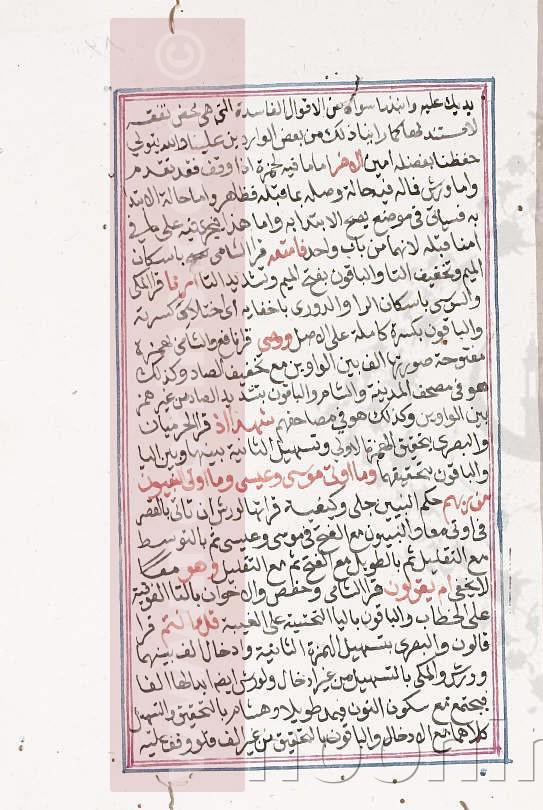 يديك عليه وانبذ ما سواه من الاقوال الفاسدة التي هي محض تفقه
لا مستند لها كما راينا ذلك من بعض الواردين علينا والله يتولي
حفظنا بفضله امين الاخر اما ما فيه لحمزة اذا وقف فقد تقدم
واما ورش فاله في حالة وصله بما قبله فظاهر واما حالة الابتدا
به فسياتي في موضع يصح الابتدا به واما هذا فيجري على ما في
امنا قبله لانهما من باب واحد فامتعه قرا الشامي باسكان
الميم وتخفيف التا والباقون بفتح الميم وتشديد التا ارنا قرا المكي
والسوسي باسكان الرا والدوري باخفايه اي اختلاس كسرته
والباقون بكسرة كاملة على الاصل ووصي قرا نافع والشامي بهمزة
مفتوحة صورتها الف بين الواوين مع تخفيف الصاد وكذلك
هو في مصحف المدينة والشام والباقون بتشديد الصاد من غير همز
بين الواوين وكذلك هو في مصاحفهم شهداء اذ قرا الحرميان
والبصري بتحقيق الهمزة الاولي وتسهيل الثانية بينها وبين اليا
والباقون بتحقيقهما وما اوتي موسى وعيسى وما اوتي النبيون
من ربهم حكم النبيين جلي وكيفية قراءتها لورش ان تاتي بالقصر
في اوتي معا والنبيون مع الفتح في موسى وعيسى ثم بالتوسط
مع التقليل ثم بالطويل مع الفتح ثم مع التقليل وهو معا
لا يخفي ام يقولون قرا الشامي وحفص والاخوان بالتا الفوقية
على الخطاب والباقون باليا التحتية على الغيبة قل اانتم قرا
قالون والبصري بتسهيل الهمزة الثانية وادخال الف بينهما
وورش والمكي بالتسهيل من غير ادخال ولورش ايضا ابدالها الفا
فيجتمع مع سكون النون فيمد طويلا وهشام بالتحقيق والتسهيل
كلاهما مع الادخال والباقون بالتحقيق من غير الف فلو وقف عليه